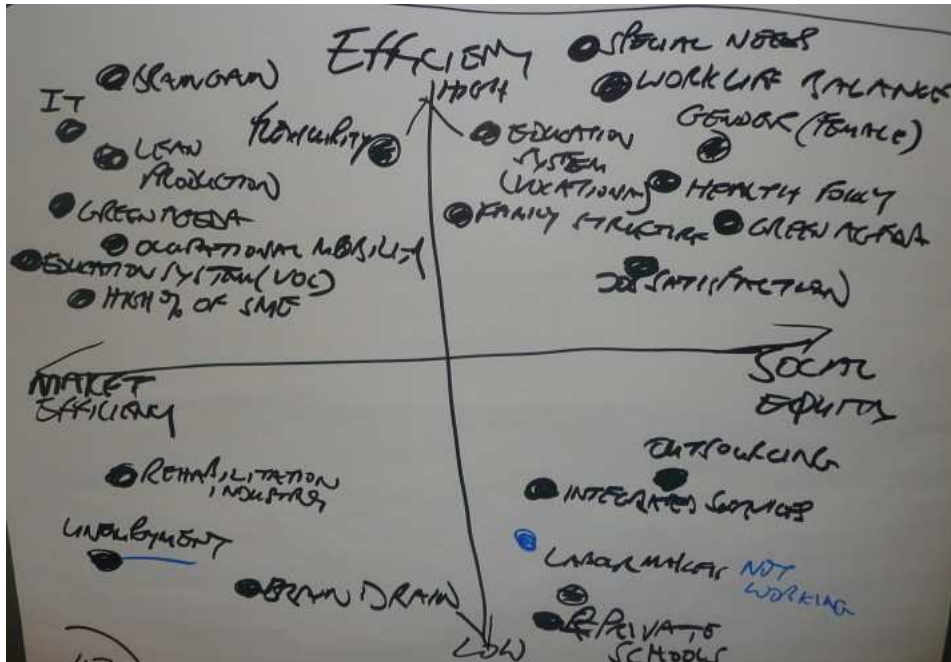 EFFICIENCY
HIGH
BRAIN GAIN
IT
LEAN
PRODUCTION
GREEN AGEDA
OCUPATIONAL MOBILITY
EDUCATION SYSTEM (VOC)
HIGH % OF SME
FLEXICURITY
SPECIAL NEEDS
WORK LIFE BALANCE
GENDER (FEMALE)
EDUCATION
SYSTEM
(VOCATIONAL)
HEALTH POLICY
FAMILY STRUCTURE
GREEN AGENDA
JOB SATISFACTION
MARKET
EFFICIENCY
SOCIAL
EQUITY
REHABILITATION
INDUSTRY
UNEMPLOYMENT
BRAIN DRAIN
LOW
OUTSOURCING
INTEGRATED SERVICES
LABOUR MARKET NOT
WORKING
PRIVATE
SCHOOLS